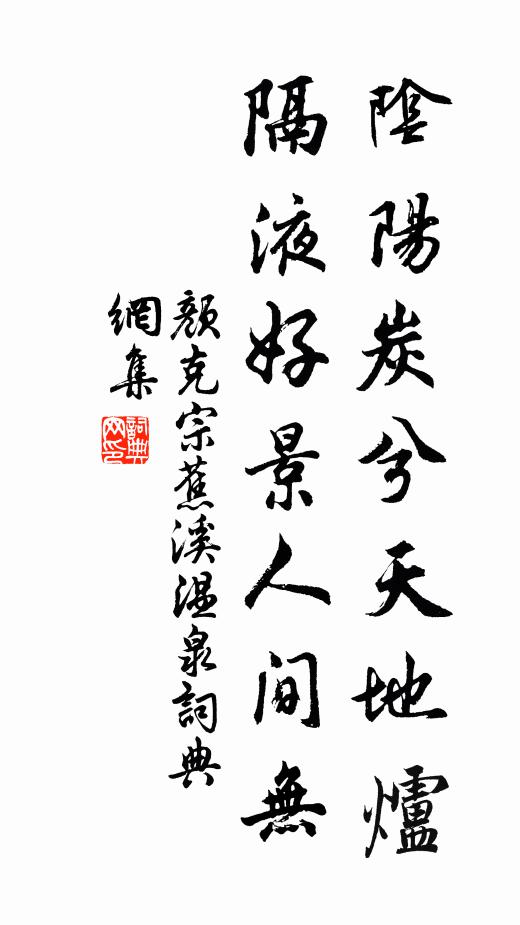 陰陽炭兮天地爐
隔液好景人間無
顏克宗蕉溪溫泉詞典
網集
詞典網印